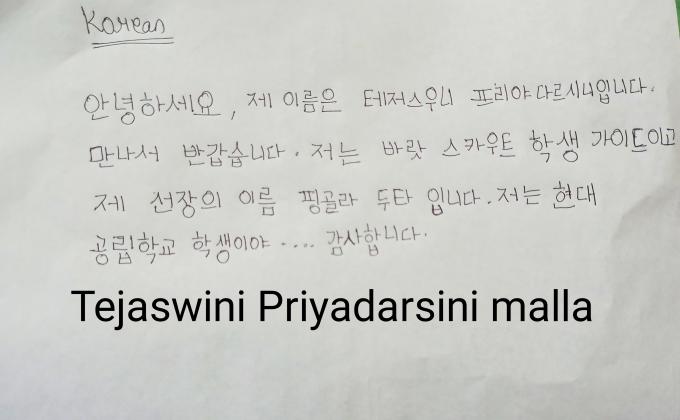 Korean
안녕하세요, 제 이름은 테저스우니 프리야다르시니입니다.
만나서 반갑습니다. 저는 바랏 스카우트 학생 가이드이고
제 선장의 이름 핑골라 두타 입니다. 저는 현대
공립학교 학생이야 .... 감사합니다.
Tejaswini Priyadarsini malla